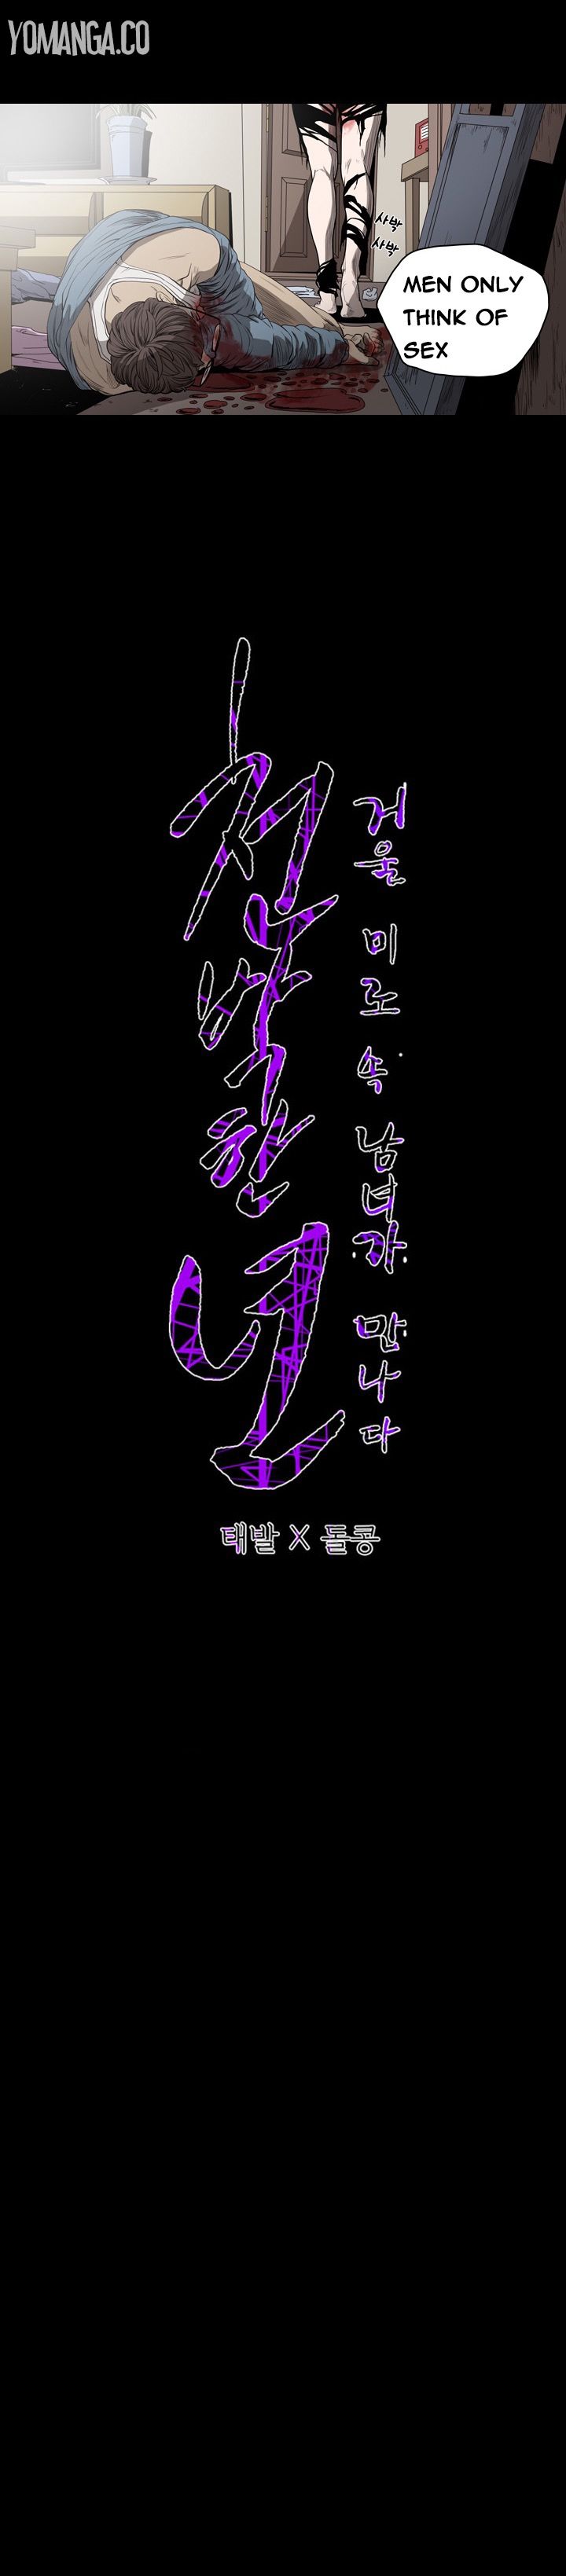 YOMANGA.CO
사박
사박
MEN ONLY
THINK OF
SEX
천박한 년
거울 미로 속 남녀가 만나다
태발 X 돌콩